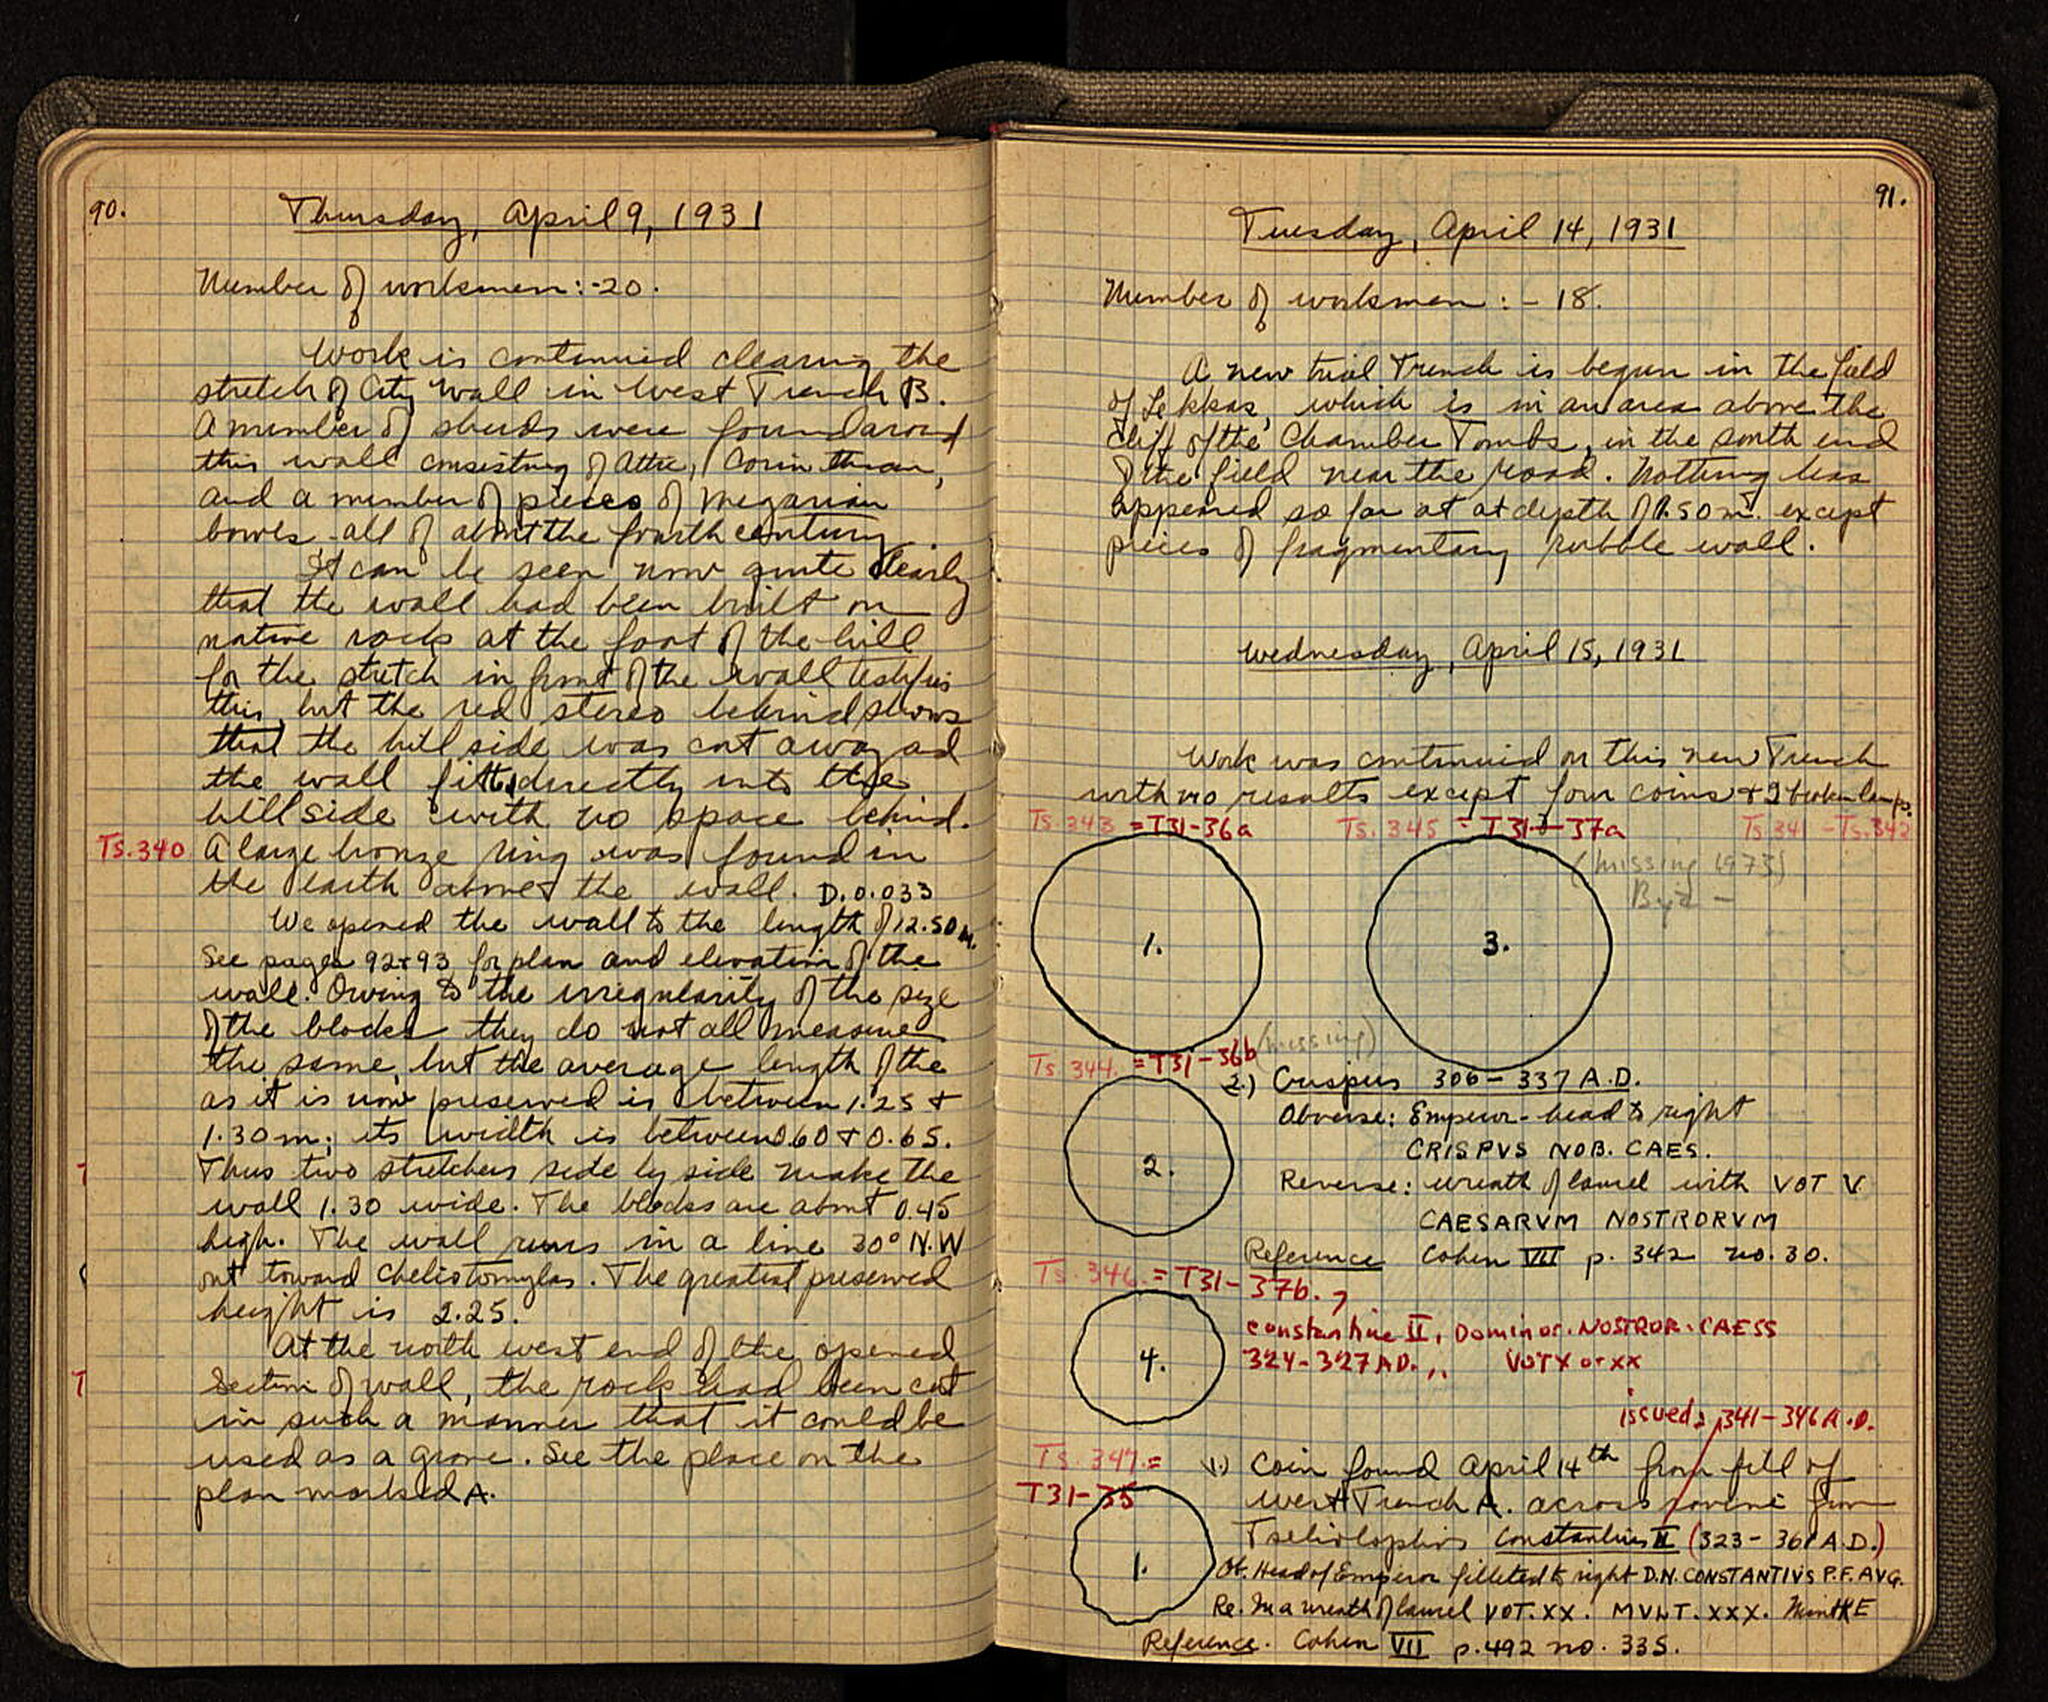 90.
Thursday, April 9, 1931
Number of workmen:-20.
Work is continued clearing the
stretch of City Wall in West Trench B.
A number of sherds were found around
this wall consisting of Attic, Corinthian,
and a number of pieces of Megarian
bowls all of about the fourth century.
It can be seen now quite clearly
that the wall had been built on
native rock at the foot of the hill
for the stretch in front of the wall testifies
this, but the red stereo behind shows
that the hill side was cut away and
the wall fitted directly into the
hillside with no space behind.
Ts.340 A large bronze ring was found in
the earth above the wall. D.0.033
We opened the wall to the length of 12.50 m.
See pages 92+93 for plan and elevation of the
wall. Owing to the irregularity of the size
of the blocks they do not all measure
the same, but the average length of the
as it is now preserved is between 1.25 +
1.30m; its width is between 0.60 + 0.65.
Thus two stretchers side by side make the
wall 1.30 wide. The blocks are about 0.45
high. The wall runs in a line 30° N.W
out toward Cheliotomylos. The greatest preserved
height is 2.25.
At the north west end of the opened
section of wall, the rock had been cut
in such a manner that it could be
used as a grave. See the place on the
plan marked A.
91.
Tuesday, April 14, 1931
Number of workmen: - 18.
A new trial Trench is begun in the field
of Lekkas, which is in an area above the
cliff of the Chamber Tombs, in the south end
of the field near the road. Nothing has
appeared so far at at depth of 1.50 m. except
pieces of fragmentary rubble wall.
Wednesday, April 15, 1931
Work was continued on this new Trench
with no results except four coins + 2 broken lamps.
Ts.343 = T31-36a Ts.345 = T31-37a Ts.341 - Ts.342
(missing 1973)
Byz -
1. 3.
Ts 344. = T31-36b (missing)
2.) Crispus 306-337 A.D.
Obverse: Emperor-head to right
CRISPVS NOB. CAES.
2.
Reverse: wreath of laurel with VOT V
CAESARVM NOSTRORVM
Reference Cohen VII p. 342 no. 30.
Ts.346. = T31-37b.
Constantine II, Dominor. NOSTROR. CAESS
324-327 AD., VOT X or XX
4.
issued 341-346 A.D.
Ts.347. =
T31-35
1.) Coin found April 14th from fill of
West Trench A. across ravine from
Tseliolophos Constantius II (323-361 A.D.)
1.
Ob. Head of Emperor filleted to right D.N. CONSTANTIVS P.F. AVG.
Re. In a wreath of laurel VOT. XX. MVLT. XXX.
Reference. Cohen VII p.492 no. 335.